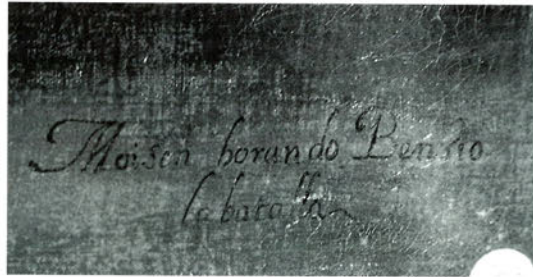 Moisen horando Bensio
la batalla